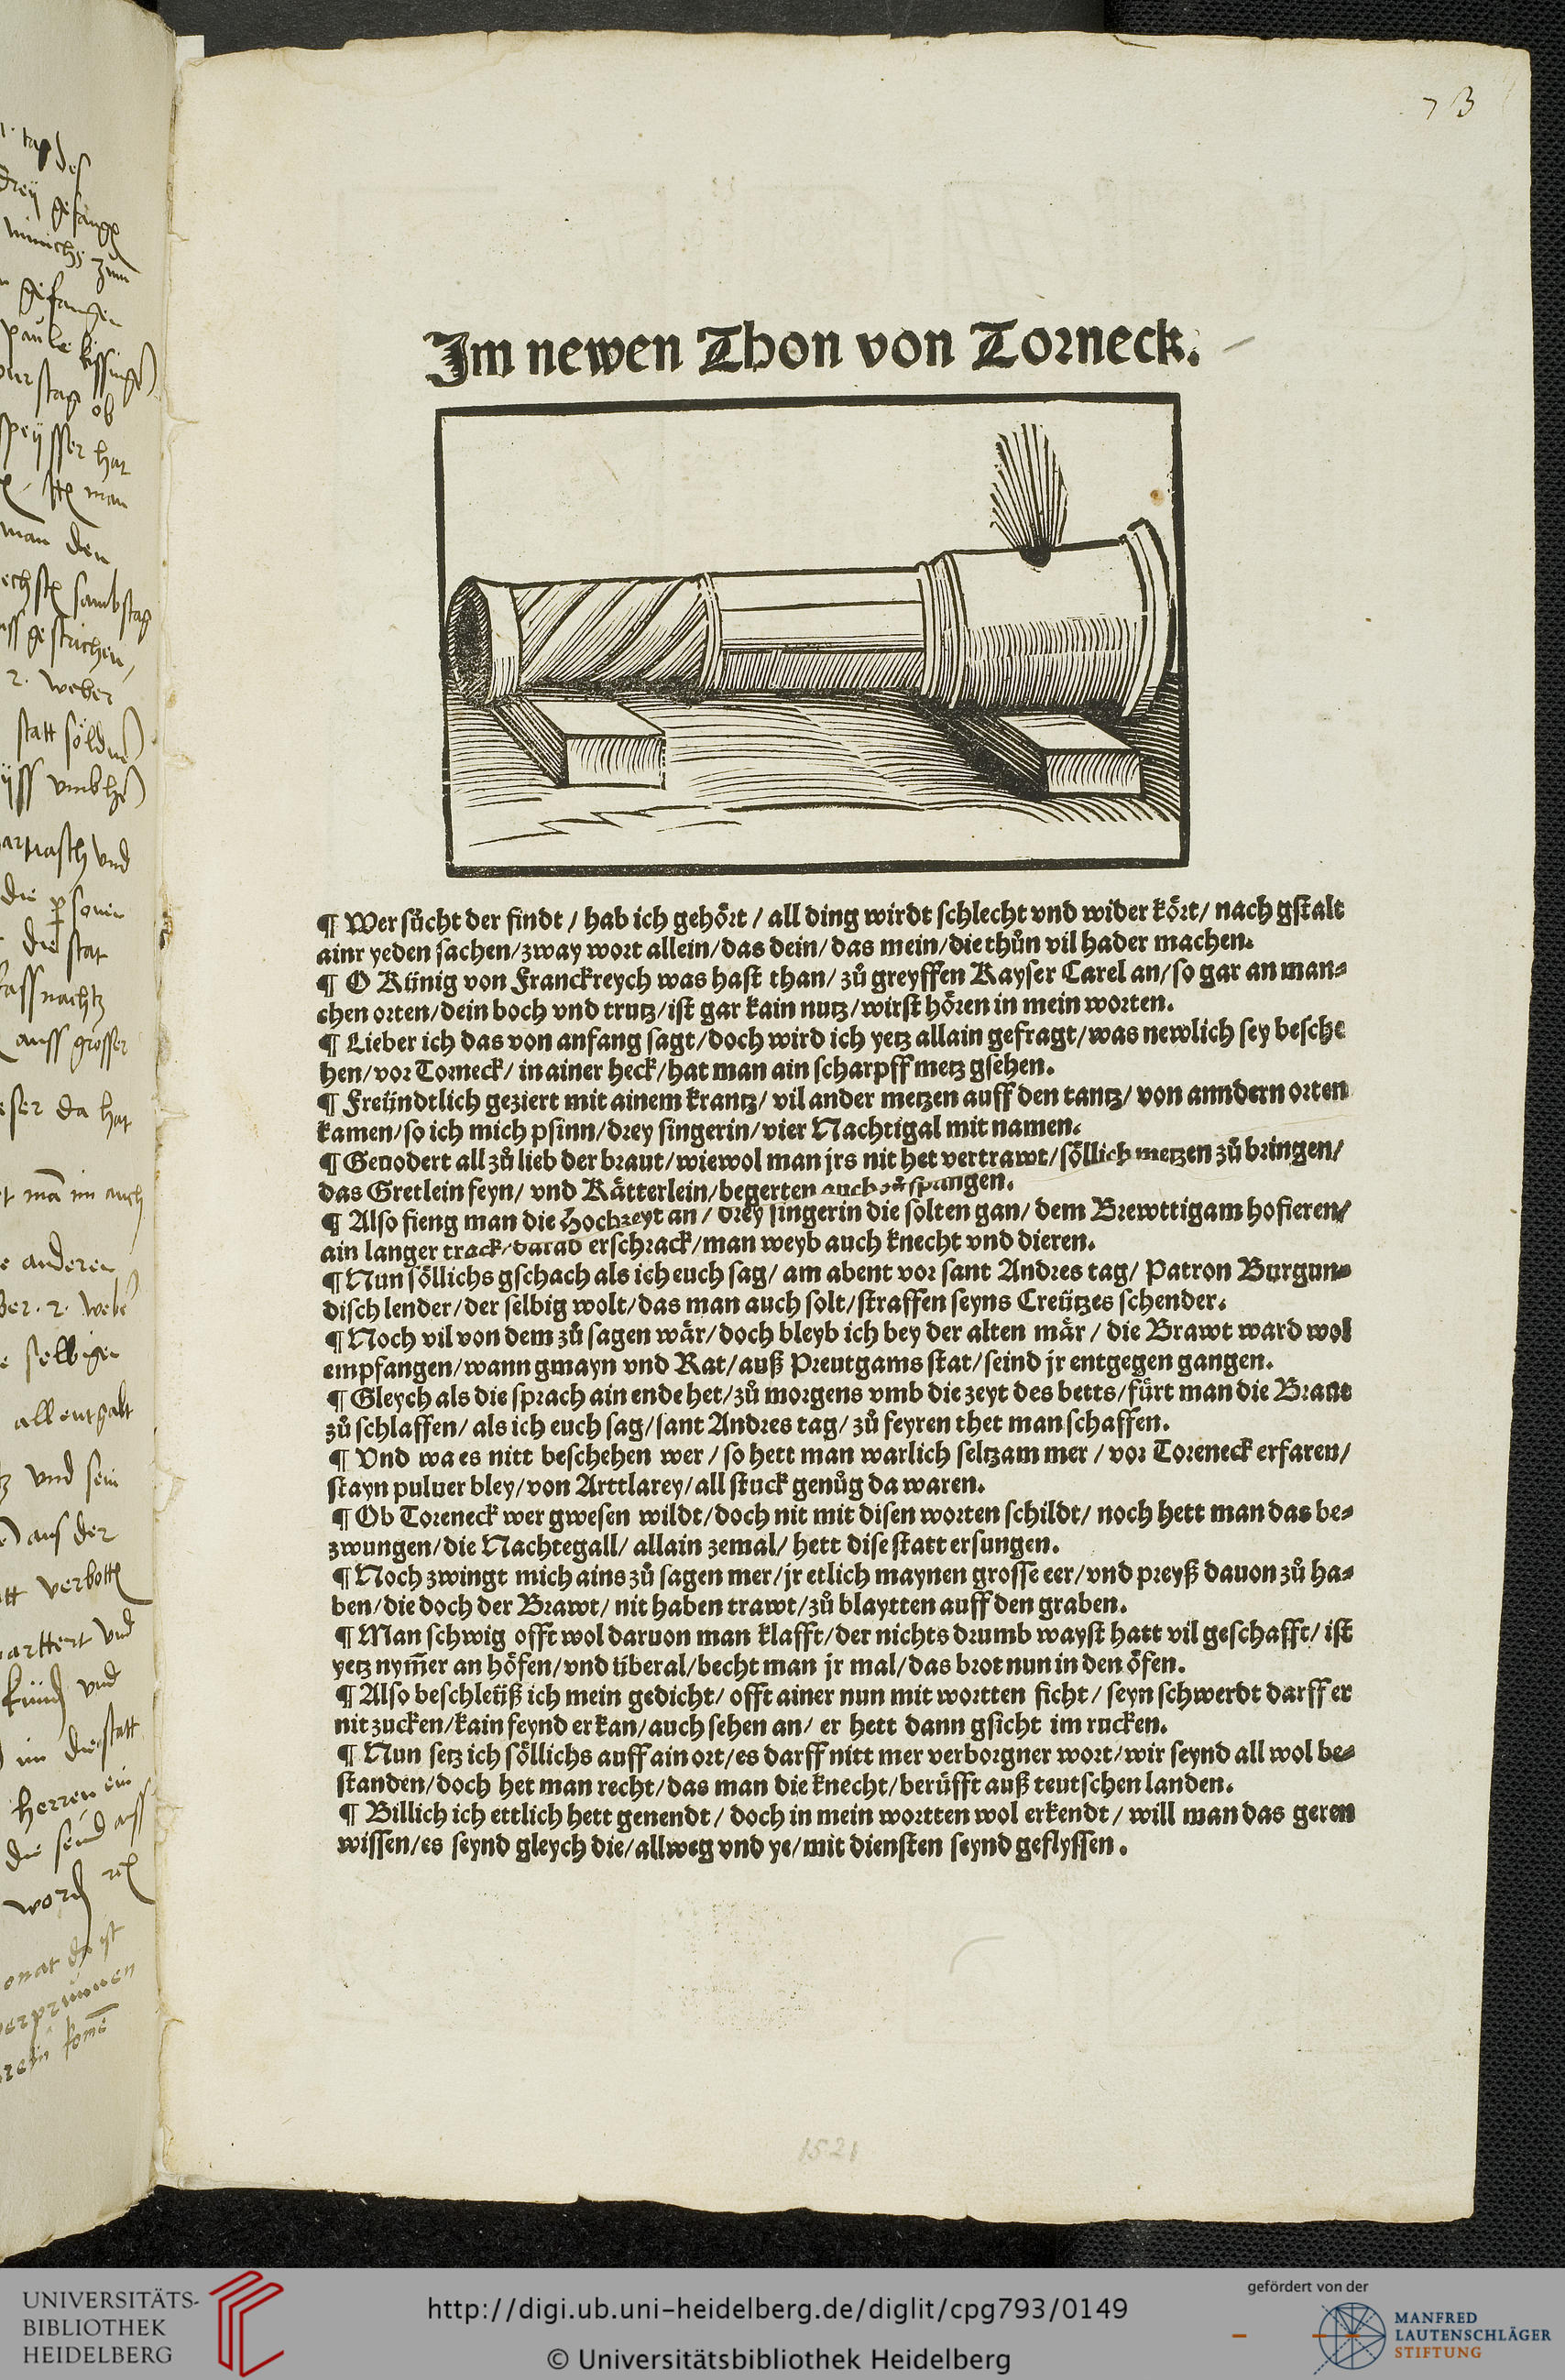 73
Im newen Thon von Torneck.
¶ Wer sůcht der findt / hab ich gehört / all ding wirdt schlecht vnd wider kört / nach gstalt
ainr yeden sachen / zway wort allein / das dein / das mein / die thůn vil hader machen.
¶ O Künig von Franckreych was hast than / zů greyffen Kayser Carel an / so gar an man⸗
chen orten / dein boch vnd trutz / ist gar kain nutz / wirst hören in mein worten.
¶ Lieber ich das von anfang sagt / doch wird ich yetz allain gefragt / was newlich sey besche
hen / vor Torneck / in ainer heck / hat man ain scharpff metz gsehen.
¶ Freündtlich geziert mit ainem krantz / vil ander metzen auff den tantz / von anndern orten
kamen / so ich mich psinn / drey singerin / vier Nachtigal mit namen.
¶ Geuodert all zů lieb der braut / wiewol man jrs nit het vertrawt / söllich metzen zů bringen /
das Gretlein feyn / vnd Kätterlein / begerten auch zů springen.
¶ Also fieng man die Hochzeyt an / drey singerin die solten gan / dem Brewttigam hofieren /
ain langer track / darab erschrack / man weyb auch knecht vnd dieren.
¶ Nun söllichs gschach als ich euch sag / am abent vor sant Andres tag / Patron Burgun⸗
disch lender / der selbig wolt / das man auch solt / straffen seyns Creützes schender.
¶ Noch vil von dem zů sagen wär / doch bleyb ich bey der alten mär / die Brawt ward wol
empfangen / wann gmayn vnd Rat / auß Preutgams stat / seind jr entgegen gangen.
¶ Gleych als die sprach ain ende het / zů morgens vmb die zeyt des betts / fürt man die Braut
zů schlaffen / als ich euch sag / sant Andres tag / zů feyren thet man schaffen.
¶ Vnd wa es nitt beschehen wer / so hett man warlich seltzam mer / vor Toreneck erfaren /
stayn puluer bley / von Arttlarey / all stuck genůg da waren.
¶ Ob Toreneck wer gwesen wildt / doch nit mit disen worten schildt / noch hett man das be⸗
zwungen / die Nachtegall / allain zemal / hett dise statt ersungen.
¶ Noch zwingt mich ains zů sagen mer / jr etlich maynen grosse eer / vnd preyß dauon zů ha⸗
ben / die doch der Brawt / nit haben trawt / zů blaytten auff den graben.
¶ Man schwig offt wol daruon man klafft / der nichts drumb wayst hatt vil geschafft / ist
yetz nym̄er an höfen / vnd überal / becht man jr mal / das brot nun in den öfen.
¶ Also beschleüß ich mein gedicht / offt ainer nun mit wortten ficht / seyn schwerdt darff er
nit zucken / kain feynd er kan / auch sehen an / er hett dann gsicht im rucken.
¶ Nun setz ich söllichs auff ain ort / es darff nitt mer verborgner wort / wir seynd all wol be⸗
standen / doch het man recht / das man die knecht / berüfft auß teutschen landen.
¶ Billich ich ettlich hett genendt / doch in mein wortten wol erkendt / will man das geren
wissen / es seynd gleych die / allweg vnd ye / mit diensten seynd geflyssen.
1521
UNIVERSITÄTS-
BIBLIOTHEK
HEIDELBERG
http://digi.ub.uni-heidelberg.de/diglit/cpg793/0149
© Universitätsbibliothek Heidelberg
gefördert von der
MANFRED
LAUTENSCHLÄGER
STIFTUNG